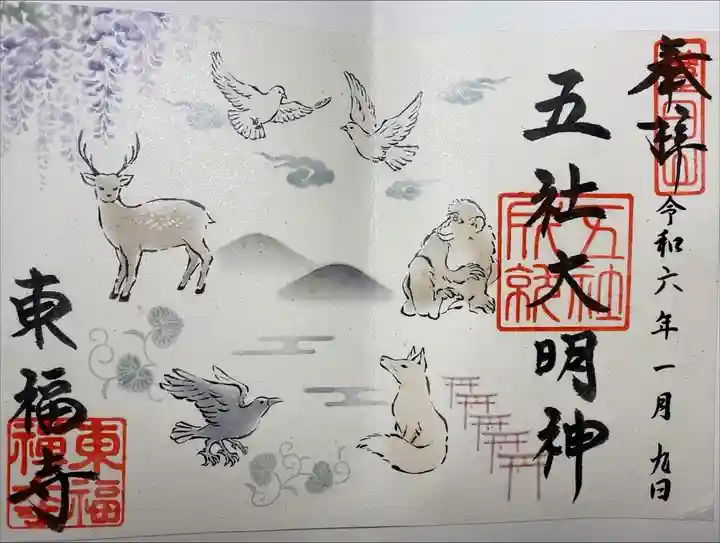 奉拝
令和六年一月九日
五社大明神
五社
成就
東福寺
東福
福寺